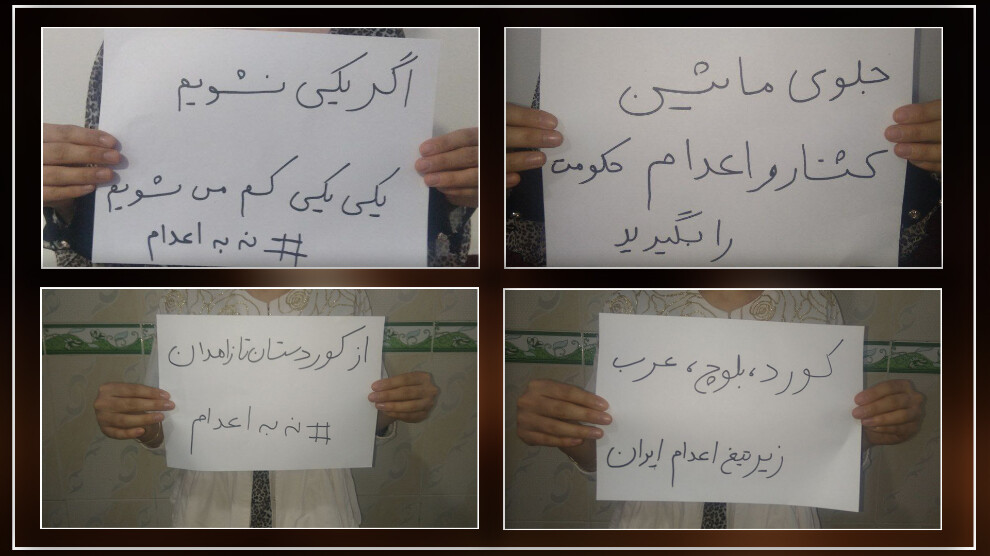 اگر یکی نشویم
یکی یکی کم می شویم
# نه به اعدام
جلوی ماشین
کشتار و اعدام حکومت
را بگیرید
از کوردستان تا زاهدان
# نه به اعدام
کورد، بلوچ، عرب
زیر تیغ اعدام ایران